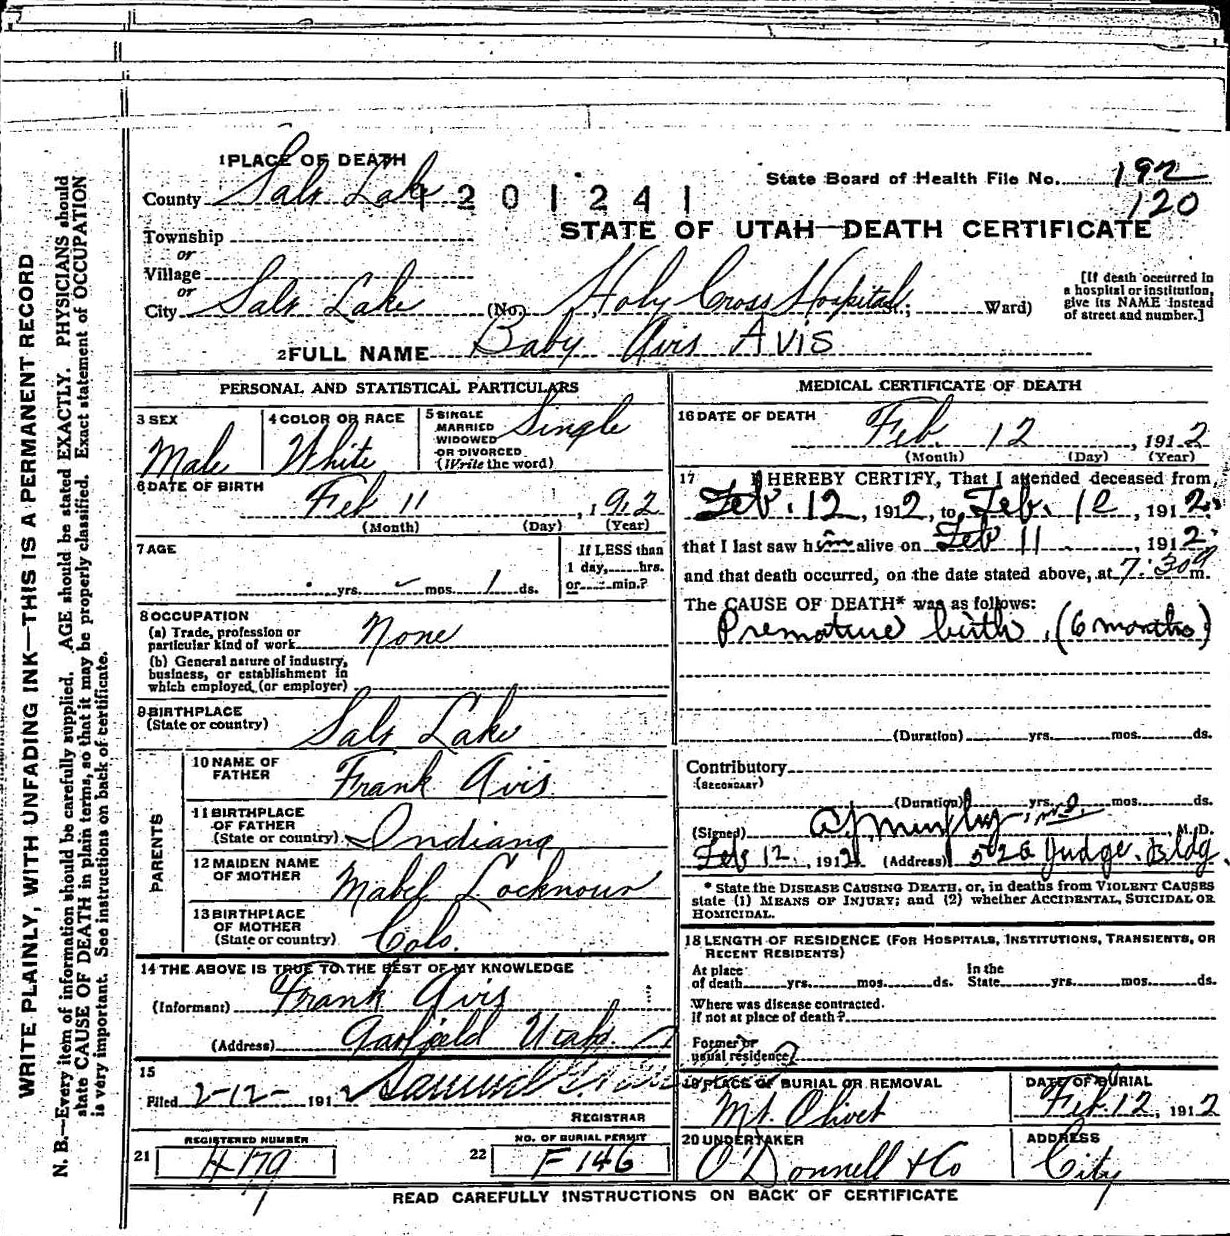 1 PLACE OF DEATH
County Salt Lake 1201241
State Board of Health File No. 192
120
STATE OF UTAH—DEATH CERTIFICATE
Township
or
Village
or
City Salt Lake (No. Holy Cross Hospital St.; Ward)
[If death occurred in a hospital or institution, give its NAME instead of street and number.]
2 FULL NAME Baby Avis AVIS
PERSONAL AND STATISTICAL PARTICULARS
3 SEX Male
4 COLOR OR RACE White
5 SINGLE MARRIED WIDOWED OR DIVORCED (Write the word) Single
6 DATE OF BIRTH Feb 11, 1912
(Month) (Day) (Year)
7 AGE
yrs. mos. 1 ds.
If LESS than 1 day, hrs. or min.?
8 OCCUPATION
(a) Trade, profession or particular kind of work None
(b) General nature of industry, business, or establishment in which employed (or employer)
9 BIRTHPLACE (State or country) Salt Lake
PARENTS
10 NAME OF FATHER Frank Avis
11 BIRTHPLACE OF FATHER (State or country) Indiana
12 MAIDEN NAME OF MOTHER Mabel
13 BIRTHPLACE OF MOTHER (State or country) Colo.
14 THE ABOVE IS TRUE TO THE BEST OF MY KNOWLEDGE
(Informant) Frank Avis
(Address) Garfield Utah
15
Filed 2-12- 1912 Samuel G.
REGISTRAR
21 REGISTERED NUMBER H179
22 NO. OF BURIAL PERMIT F146
MEDICAL CERTIFICATE OF DEATH
16 DATE OF DEATH
Feb. 12, 1912
(Month) (Day) (Year)
17 I HEREBY CERTIFY, That I attended deceased from
Feb. 12, 1912, to Feb. 12, 1912.
that I last saw him alive on Feb 11, 1912.
and that death occurred, on the date stated above, at 7:30 a m.
The CAUSE OF DEATH* was as follows:
Premature birth, (6 months)
(Duration) yrs. mos. ds.
Contributory
(SECONDARY)
(Duration) yrs. mos. ds.
(Signed) Murphy, M.D., M. D.
Feb 12, 1912 (Address) Judge Bldg.
* State the DISEASE CAUSING DEATH, or, in deaths from VIOLENT CAUSES state (1) MEANS OF INJURY; and (2) whether ACCIDENTAL, SUICIDAL OR HOMICIDAL.
18 LENGTH OF RESIDENCE (FOR HOSPITALS, INSTITUTIONS, TRANSIENTS, OR RECENT RESIDENTS)
At place of death yrs. mos. ds. In the State yrs. mos. ds.
Where was disease contracted, if not at place of death?
Former or usual residence
19 PLACE OF BURIAL OR REMOVAL Mt. Olivet
DATE OF BURIAL Feb. 12, 1912
20 UNDERTAKER O'Donnell & Co
ADDRESS City
READ CAREFULLY INSTRUCTIONS ON BACK OF CERTIFICATE
WRITE PLAINLY, WITH UNFADING INK—THIS IS A PERMANENT RECORD
N. B.—Every item of information should be carefully supplied. AGE should be stated EXACTLY. PHYSICIANS should
state CAUSE OF DEATH in plain terms, so that it may be properly classified. Exact statement of OCCUPATION
is very important. See instructions on back of certificate.